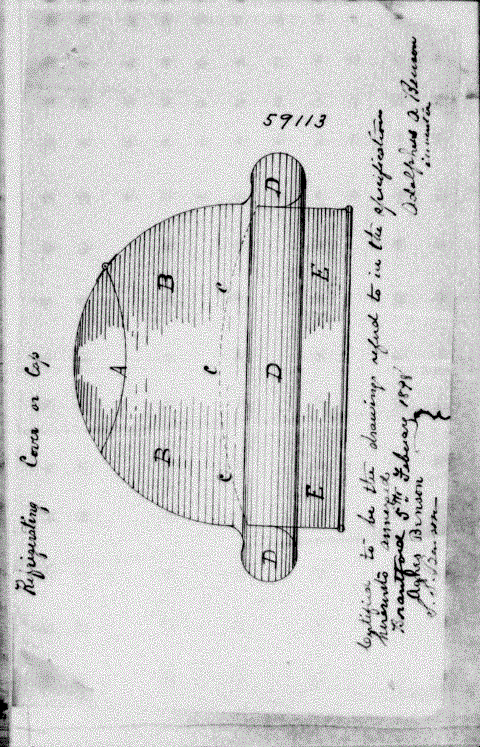 Refrigerating Cover or Cap
59113
A
B
B
C
C
C
D
D
D
E
E
Certified to be the drawings referd to in the specification
hereunto annexed
Brantford 5th Febuary 1898
Agnes Benson
Benson
Adolphus A. Benson
inventor